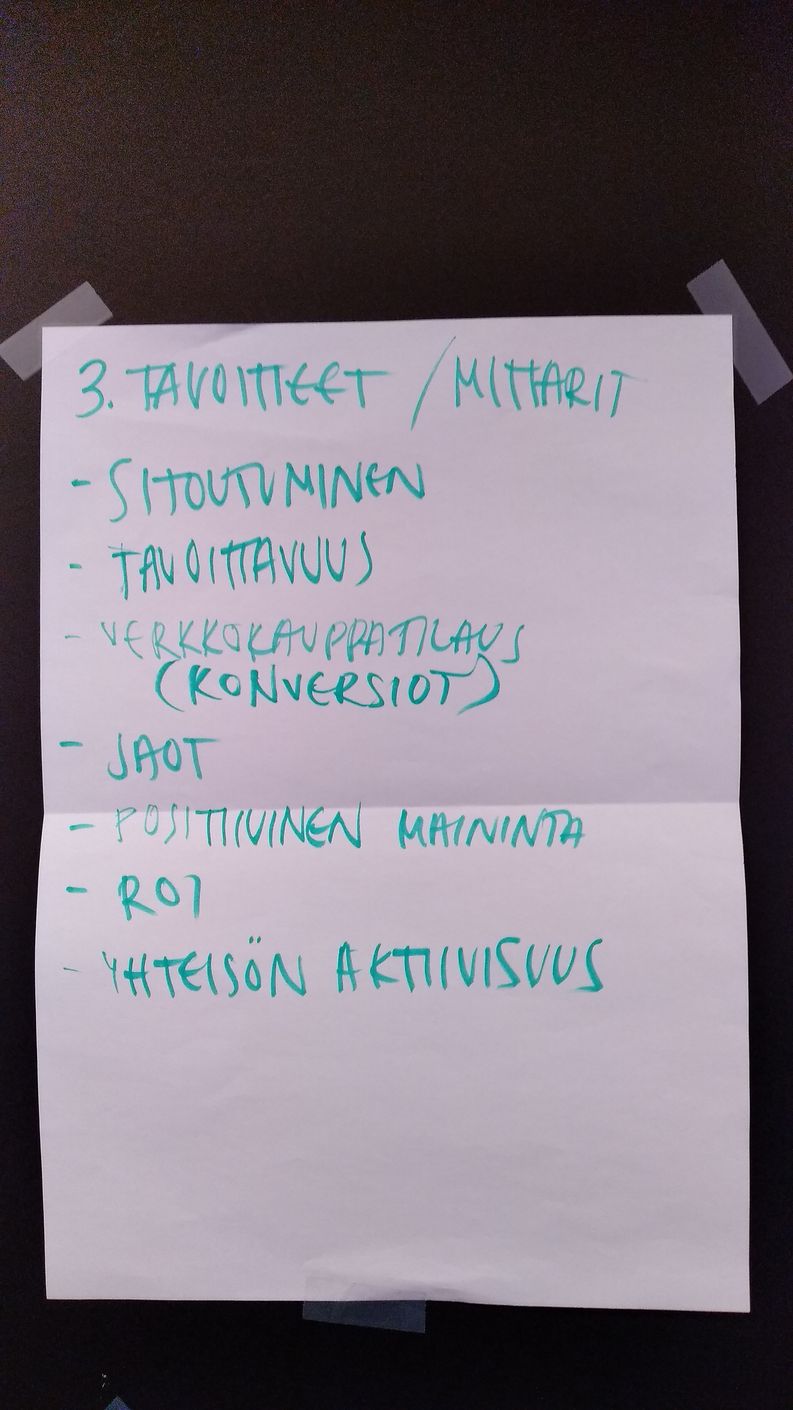 3. TAVOITTEET / MITTARIT
- SITOUTUMINEN
- TAVOITTAVUUS
- VERKKOKAUPPATILAUS
(KONVERSIOT)
- JAOT
- POSITIIVINEN MAININTA
- ROI
- YHTEISÖN AKTIIVISUUS